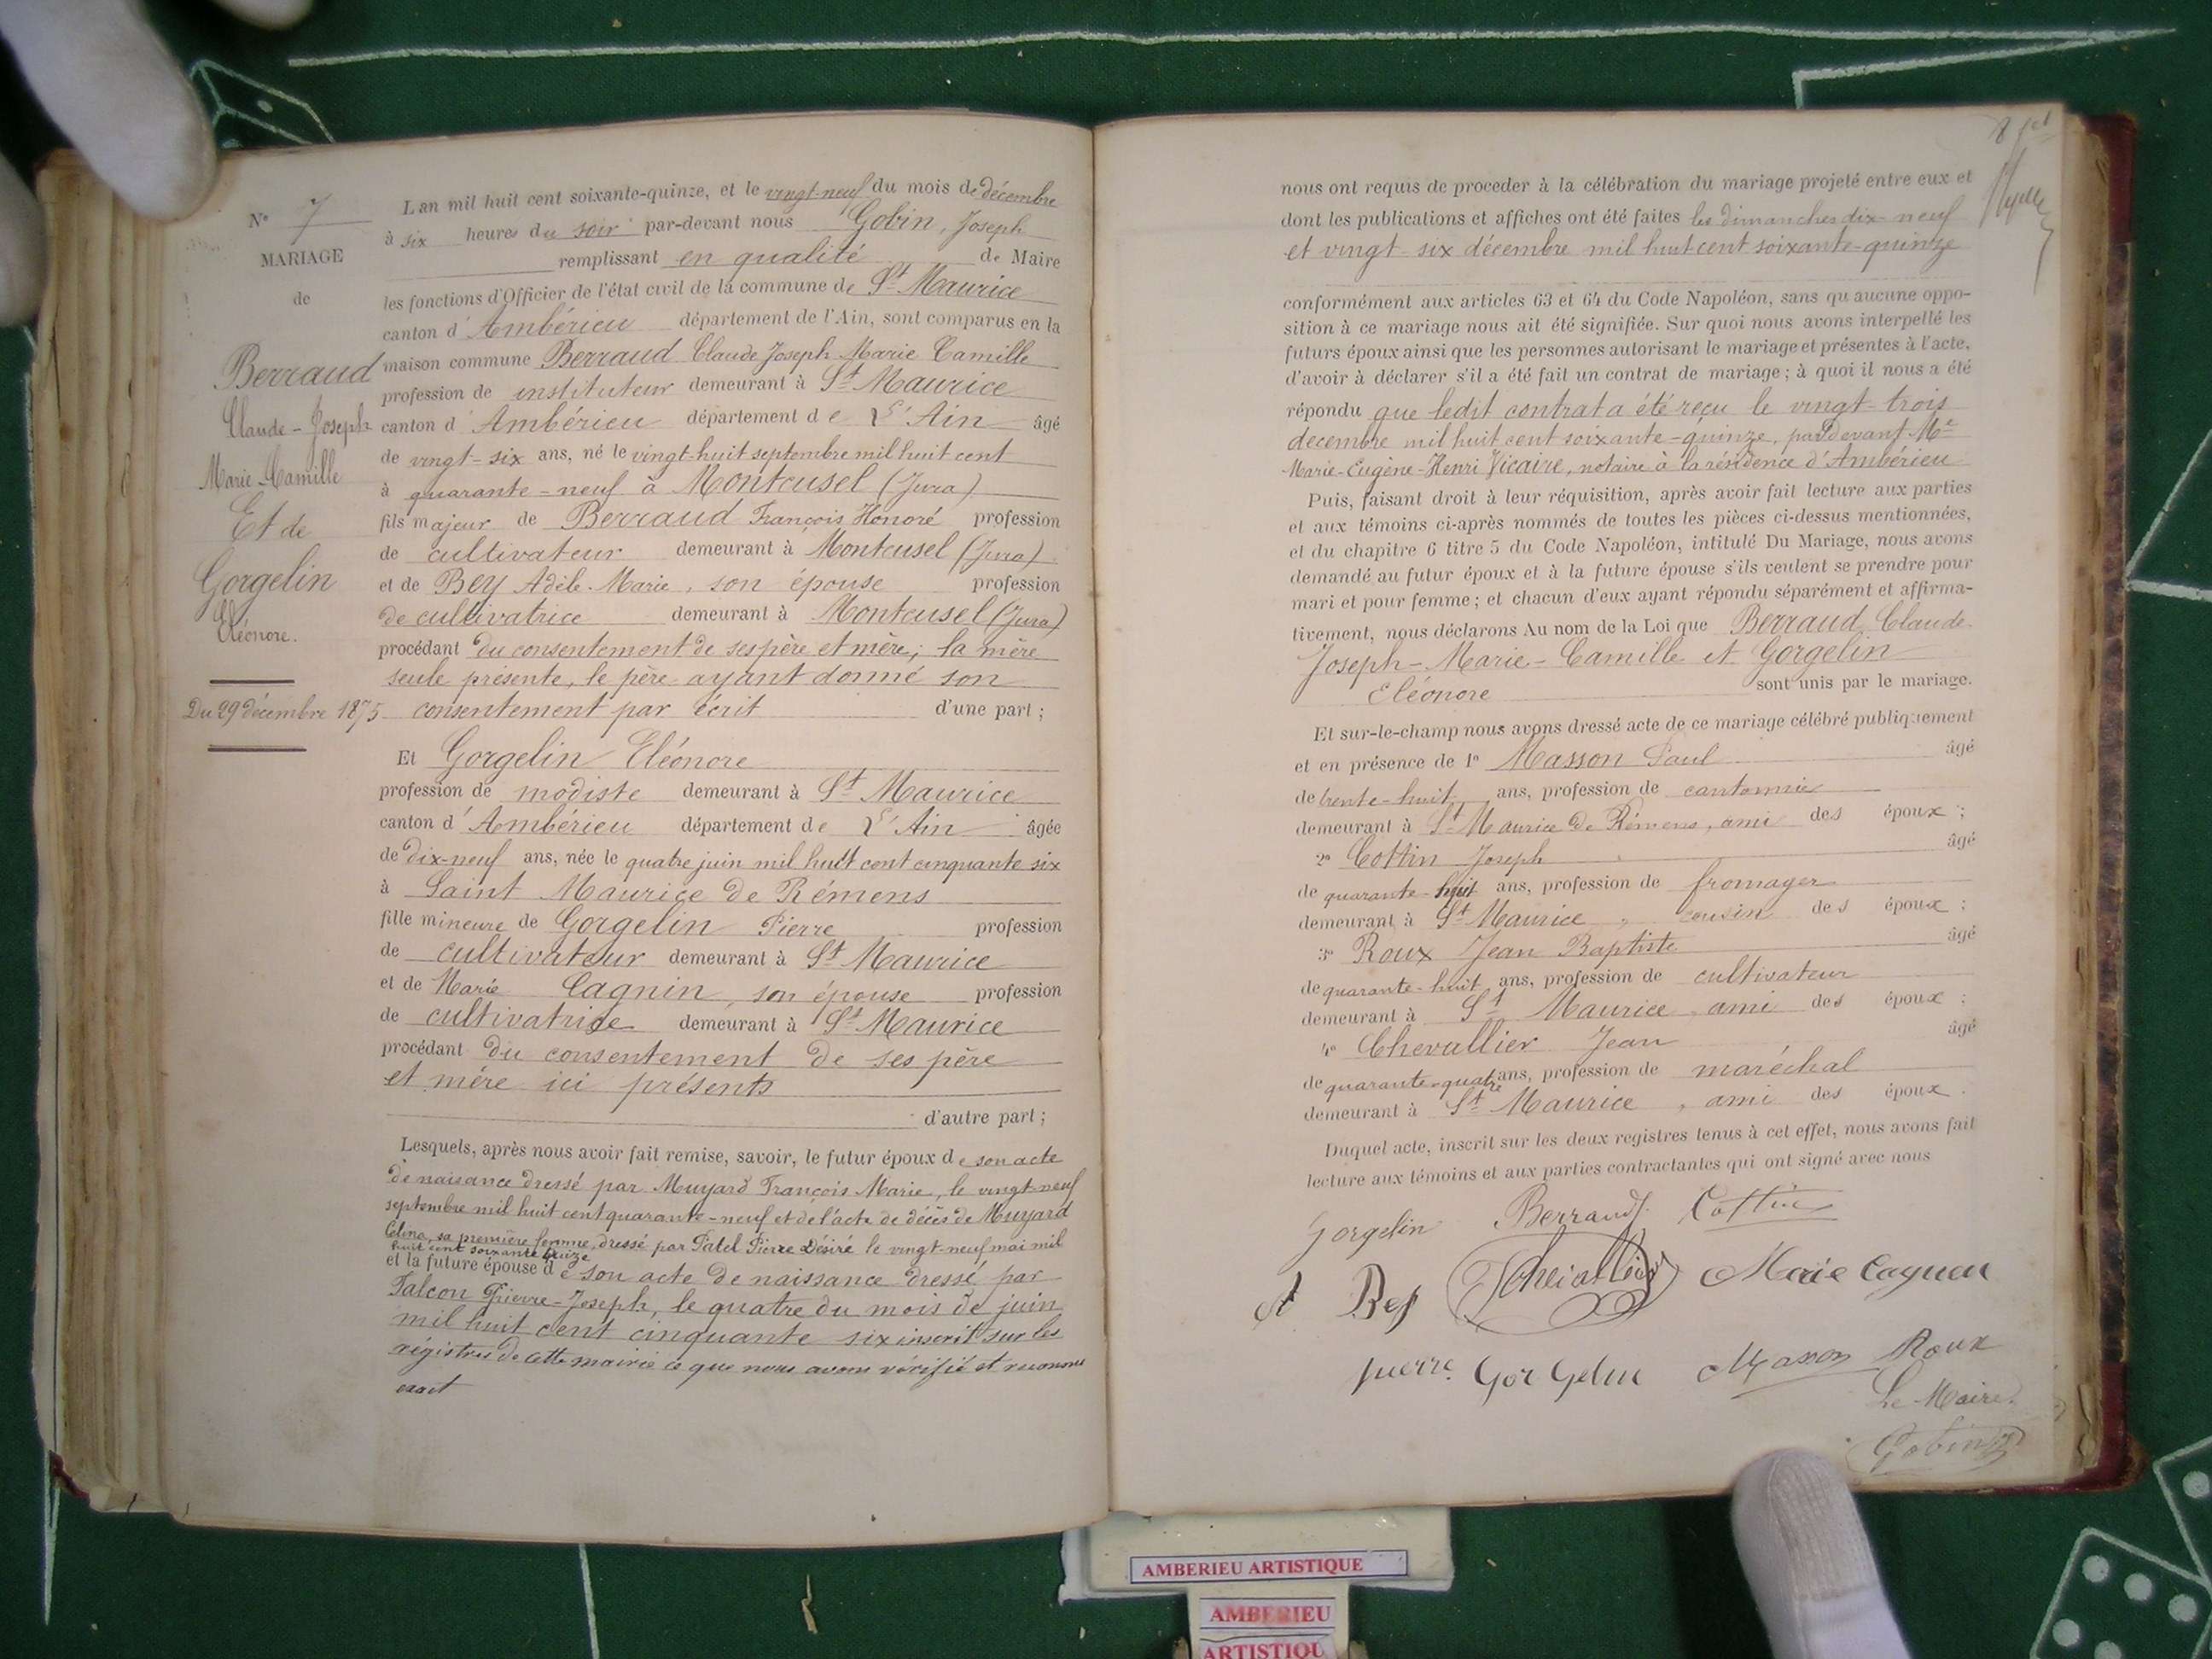 N° 7
MARIAGE
de
Berraud
Claude-Joseph
Marie Camille
Et de
Gorgelin
Eléonore.
Du 29 décembre 1875
L'an mil huit cent soixante-quinze, et le vingt-neuf du mois de décembre
à six heures du soir par-devant nous Gobin, Joseph
remplissant en qualité de Maire
les fonctions d'Officier de l'état civil de la commune de St Maurice
canton d'Ambérieu département de l'Ain, sont comparus en la
maison commune Berraud Claude Joseph Marie Camille
profession de instituteur demeurant à St Maurice
canton d'Ambérieu département de L'Ain âgé
de vingt-six ans, né le vingt-huit septembre mil huit cent
à quarante-neuf à Montcusel (Jura)
fils majeur de Berraud François Honoré profession
de cultivateur demeurant à Montcusel (Jura)
et de Bey Adèle-Marie, son épouse profession
de cultivatrice demeurant à Montcusel (Jura)
procédant du consentement de ses père et mère; la mère
seule présente, le père ayant donné son
consentement par écrit d'une part ;
Et Gorgelin Eléonore
profession de modiste demeurant à St Maurice
canton d'Ambérieu département de L'Ain âgée
de dix-neuf ans, née le quatre juin mil huit cent cinquante six
à Saint Maurice de Rémens
fille mineure de Gorgelin Pierre profession
de cultivateur demeurant à St Maurice
et de Marie Cagnin, son épouse profession
de cultivatrice demeurant à St Maurice
procédant du consentement de ses père
et mère ici présents
d'autre part ;
Lesquels, après nous avoir fait remise, savoir, le futur époux de son acte
de naissance dressé par Muyard François Marie, le vingt-neuf
septembre mil huit cent quarante-neuf et de l'acte de décès de Muyard
Célina, sa première femme, dressé par Patel Pierre Désiré le vingt-neuf mai mil
huit cent soixante quinze
et la future épouse de son acte de naissance dressé par
Falcon Pierre-Joseph, le quatre du mois de juin
mil huit cent cinquante six inscrit sur les
régistres de cette mairie ce que nous avons vérifié et reconnu
exact
nous ont requis de proceder à la célébration du mariage projeté entre eux et
dont les publications et affiches ont été faites les dimanches dix-neuf
et vingt-six décembre mil huit cent soixante-quinze
conformément aux articles 63 et 64 du Code Napoléon, sans qu'aucune oppo-
sition à ce mariage nous ait été signifiée. Sur quoi nous avons interpellé les
futurs époux ainsi que les personnes autorisant le mariage et présentes à l'acte,
d'avoir à déclarer s'il a été fait un contrat de mariage ; à quoi il nous a été
répondu que ledit contrat a été reçu le vingt-trois
décembre mil huit cent soixante-quinze, par devant Me
Marie-Eugène-Henri Vicaire, notaire à la résidence d'Ambérieu
Puis, faisant droit à leur réquisition, après avoir fait lecture aux parties
et aux témoins ci-après nommés de toutes les pièces ci-dessus mentionnées,
et du chapitre 6 titre 5 du Code Napoléon, intitulé Du Mariage, nous avons
demandé au futur époux et à la future épouse s'ils veulent se prendre pour
mari et pour femme ; et chacun d'eux ayant répondu séparément et affirma-
tivement, nous déclarons Au nom de la Loi que Berraud Claude
Joseph-Marie-Camille et Gorgelin
Eléonore sont unis par le mariage.
Et sur-le-champ nous avons dressé acte de ce mariage célébré publiquement
et en présence de 1° Masson Paul âgé
de trente-huit ans, profession de cantonnier
demeurant à St Maurice de Rémens, ami des époux ;
2° Cottin Joseph âgé
de quarante-huit ans, profession de fromager
demeurant à St Maurice, cousin des époux ;
3° Roux Jean Baptiste âgé
de quarante-huit ans, profession de cultivateur
demeurant à St Maurice ami des époux ;
4° Chevallier Jean âgé
de quarante-quatre ans, profession de maréchal
demeurant à St Maurice, ami des époux.
Duquel acte, inscrit sur les deux registres tenus à cet effet, nous avons fait
lecture aux témoins et aux parties contractantes qui ont signé avec nous
Gorgelin Berraud Cottin
A Bey Chevallier Marie Cagnen
pierre Gorgelin Masson Roux
Le Maire.
Gobin
AMBERIEU ARTISTIQUE
AMBERIEU
ARTISTIQU